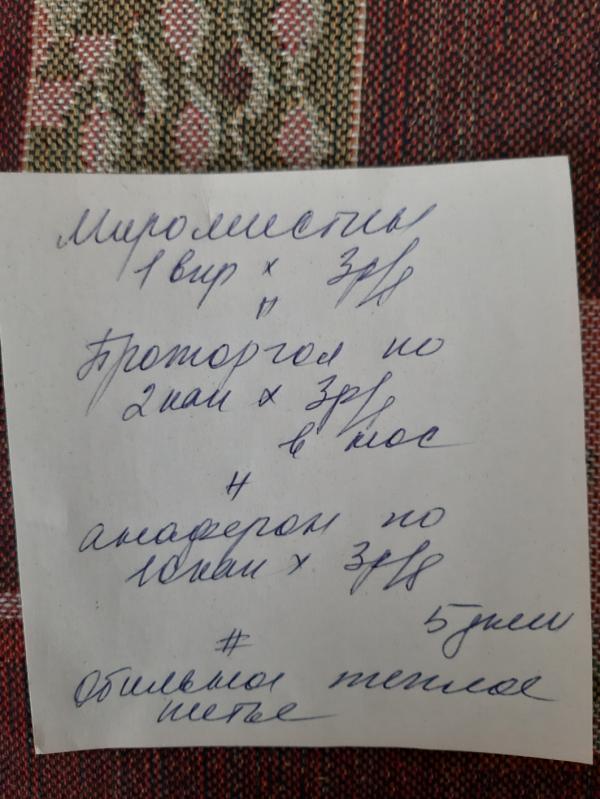 Мирамистин
1 впр х 3р/д
#
Проторгол по
2 кап х 3р/д
в нос
#
анаферон по
10 кап х 3р/д
5 дней
#
Обильное теплое
питье